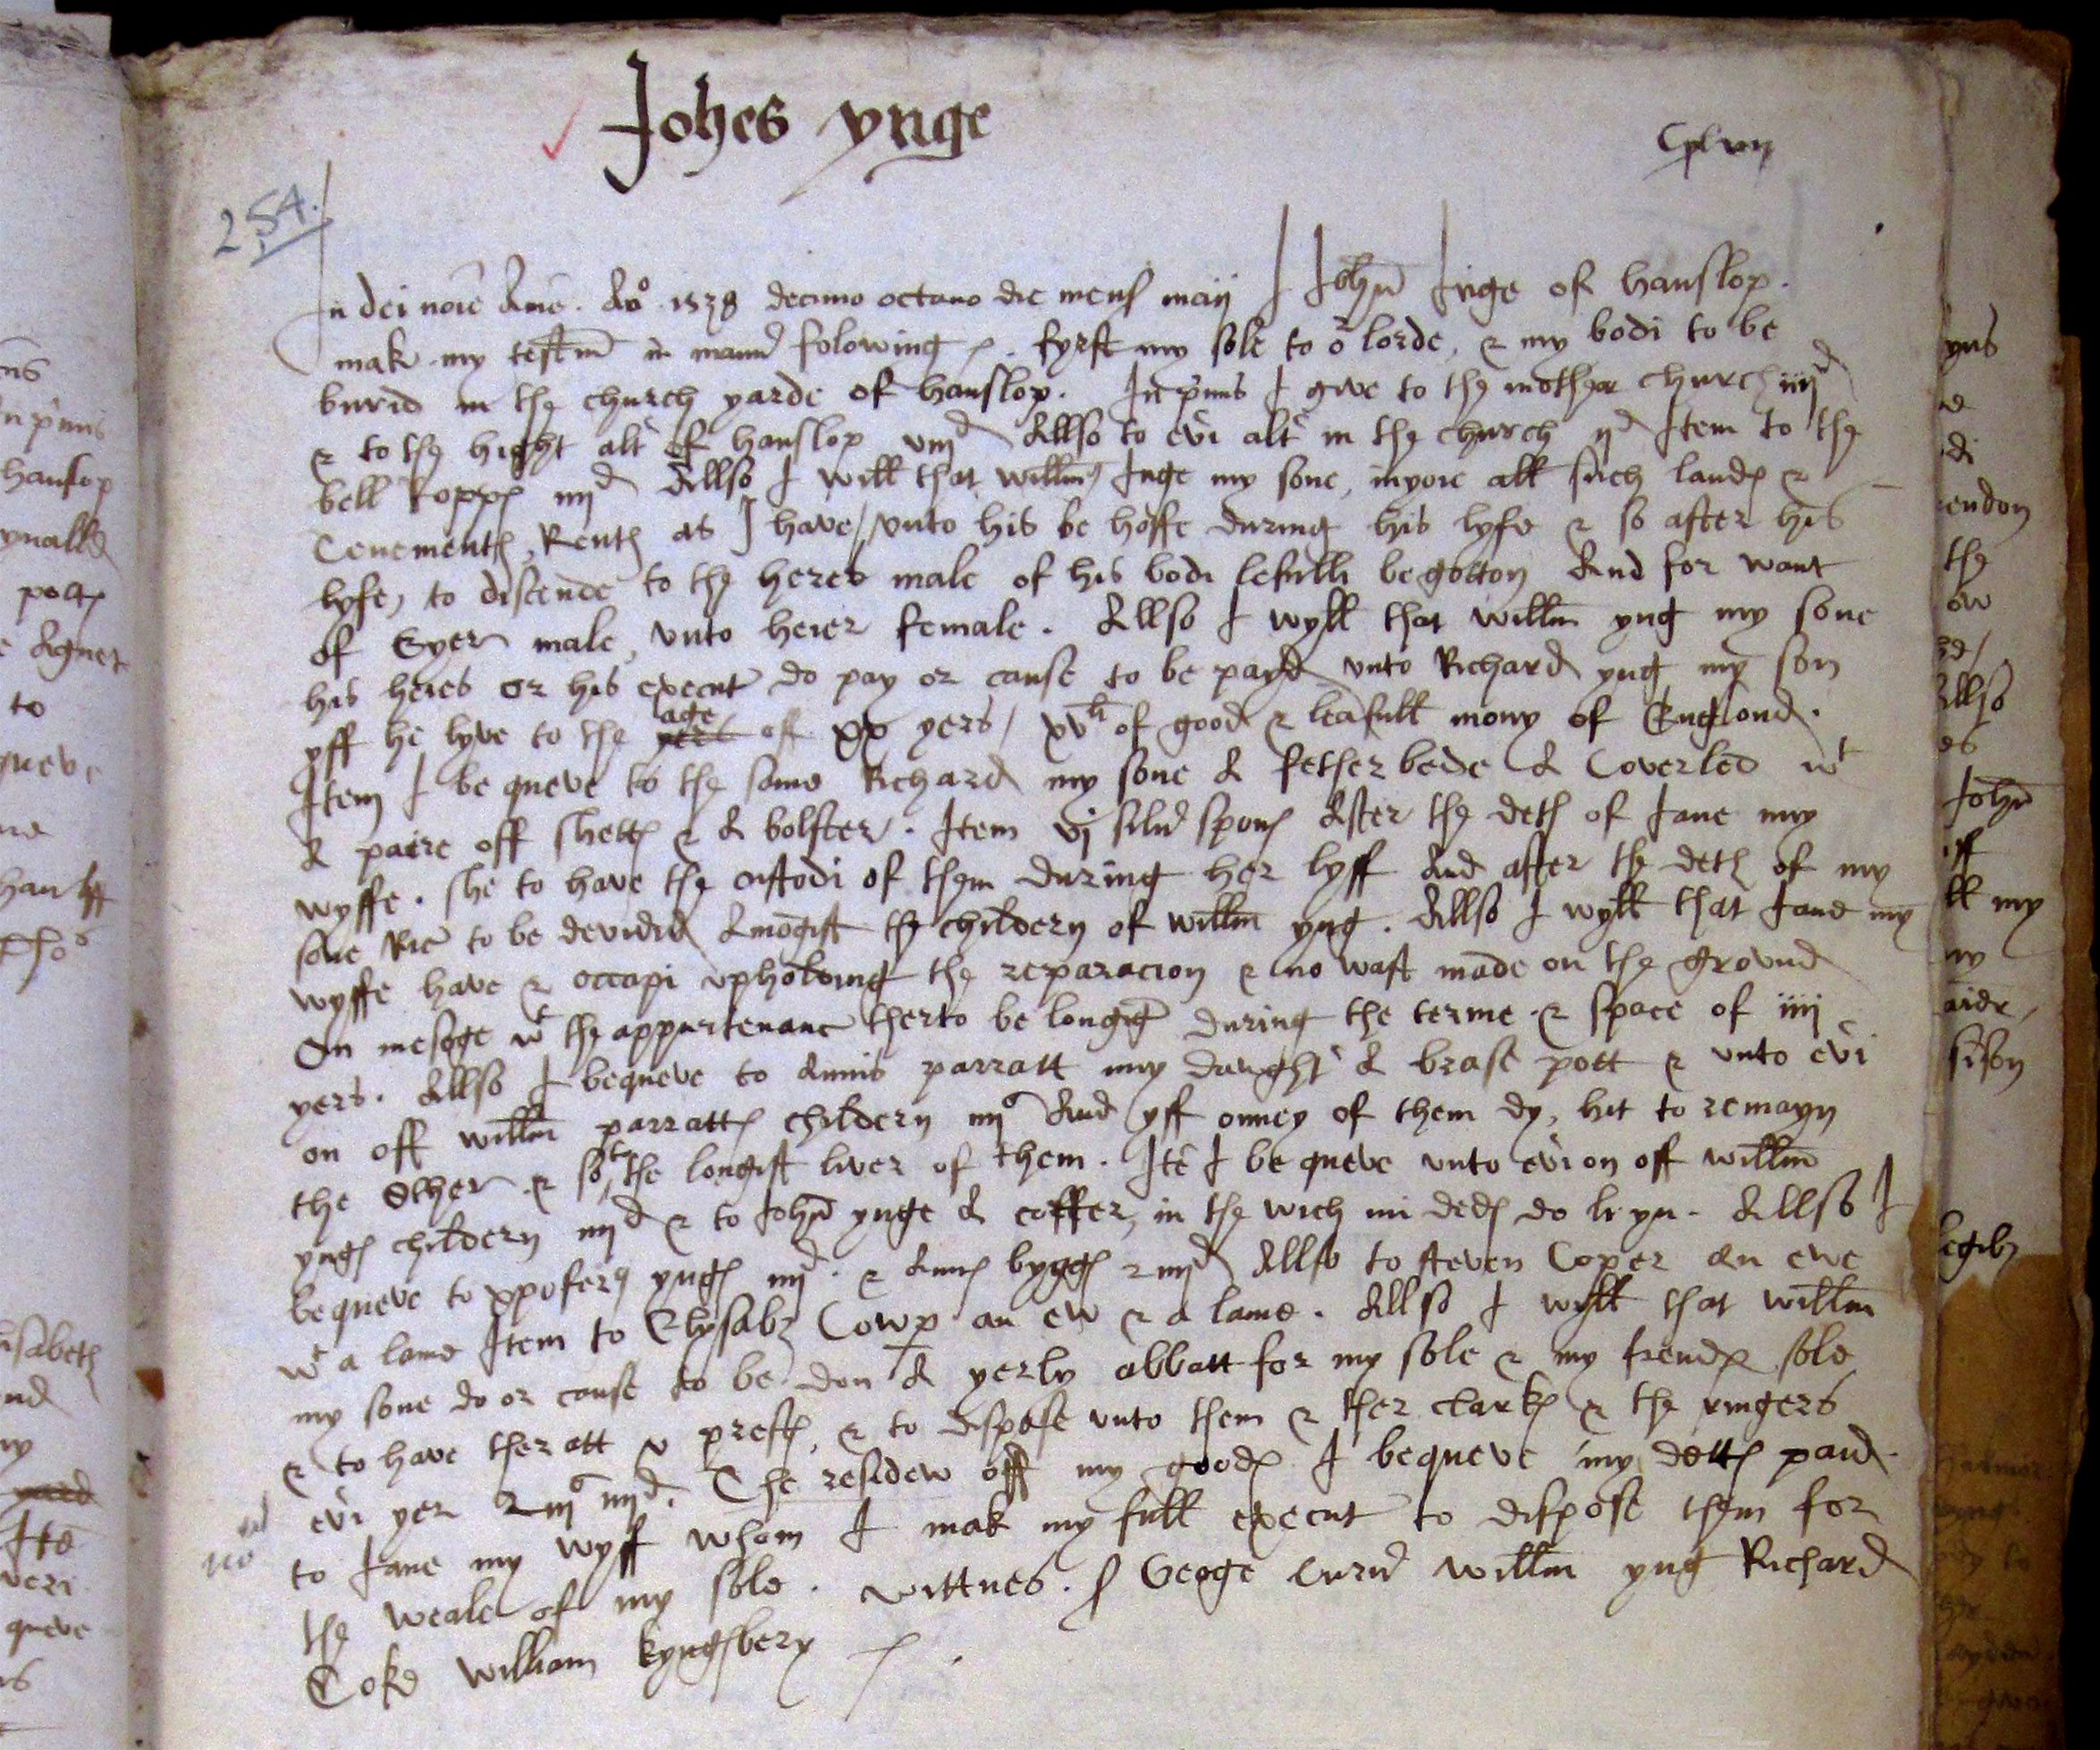 Johes ynge
254.
In dei noie Ame. Ao 1538 decimo octavo die mens maij I John Inge of hanslop.
mak my testm in maner folowing. fyrst my sole to or lorde, & my bodi to be
burid in the church yarde of hanslop. In pimis I give to the mother church iiijd
& to the hight alt of hanslop viijd Allso to evi alt in the church ijd Item to the
bell roppes iiijd Allso I will that willm Inge my sone, injoie all such landes &
Tenementes, Rentes as I have, unto his be hoffe during his lyfe & so after his
lyfe, to discende to the heres male of his bodi lefulli begotton And for want
of Eyer male, unto heier female. Allso I wyll that willm yng my sone
his heies or his execut do pay or cause to be payd unto Richard yng my son
yff he lyve to the yers age off xx yers, xvli of good & leafull mony of Englond.
Item I be queve to the same Richard my sone A fether bede A Coverled wt
A paire off shettes & A bolster. Item vj silver spons After the deth of Jane my
wyffe. she to have the custodi of them during her lyff And after the deth of my
sone Ric to be devidid Amogist the childern of willm yng. Allso I wyll that Jane my
wyffe have & occapi upholding the reparacion & no wast made on the ground
On mesoge wt the appurtenanc therto be longig during the terme & space of iiij
yers. Allso I bequeve to Annis parratt my dawght A brase pott & unto evi
on off willm parrattes childern iijs And yff onney of them dy, hit to remayn
the Other & so to the longist liver of them. Ite I be queve unto evi on off willm
ynges childern iiijd & to John ynge A coffer, in the wich mi dedes do li yn. Allso I
bequeve to xpofer ynges iiijd. & Annes bygges iiijd Allso to steven Coper an ewe
wt a lame Item to Elysabz Cowp an ew & a lame. Allso I wyll that willm
my sone do or cause to be don A yerly abbatt for my sole & my frendes sole
& to have theratt v prestes, & to dispose unto them & ther clarkes & the ringers
evi yer iijs iiijd. The residew off my goodes I bequeve my dettes paid
to Jane my wyff whom I mak my full execut to dispose them for
the weale of my sole. wittnes. S George Curd willm yng Richard
Coke william kyngsbery